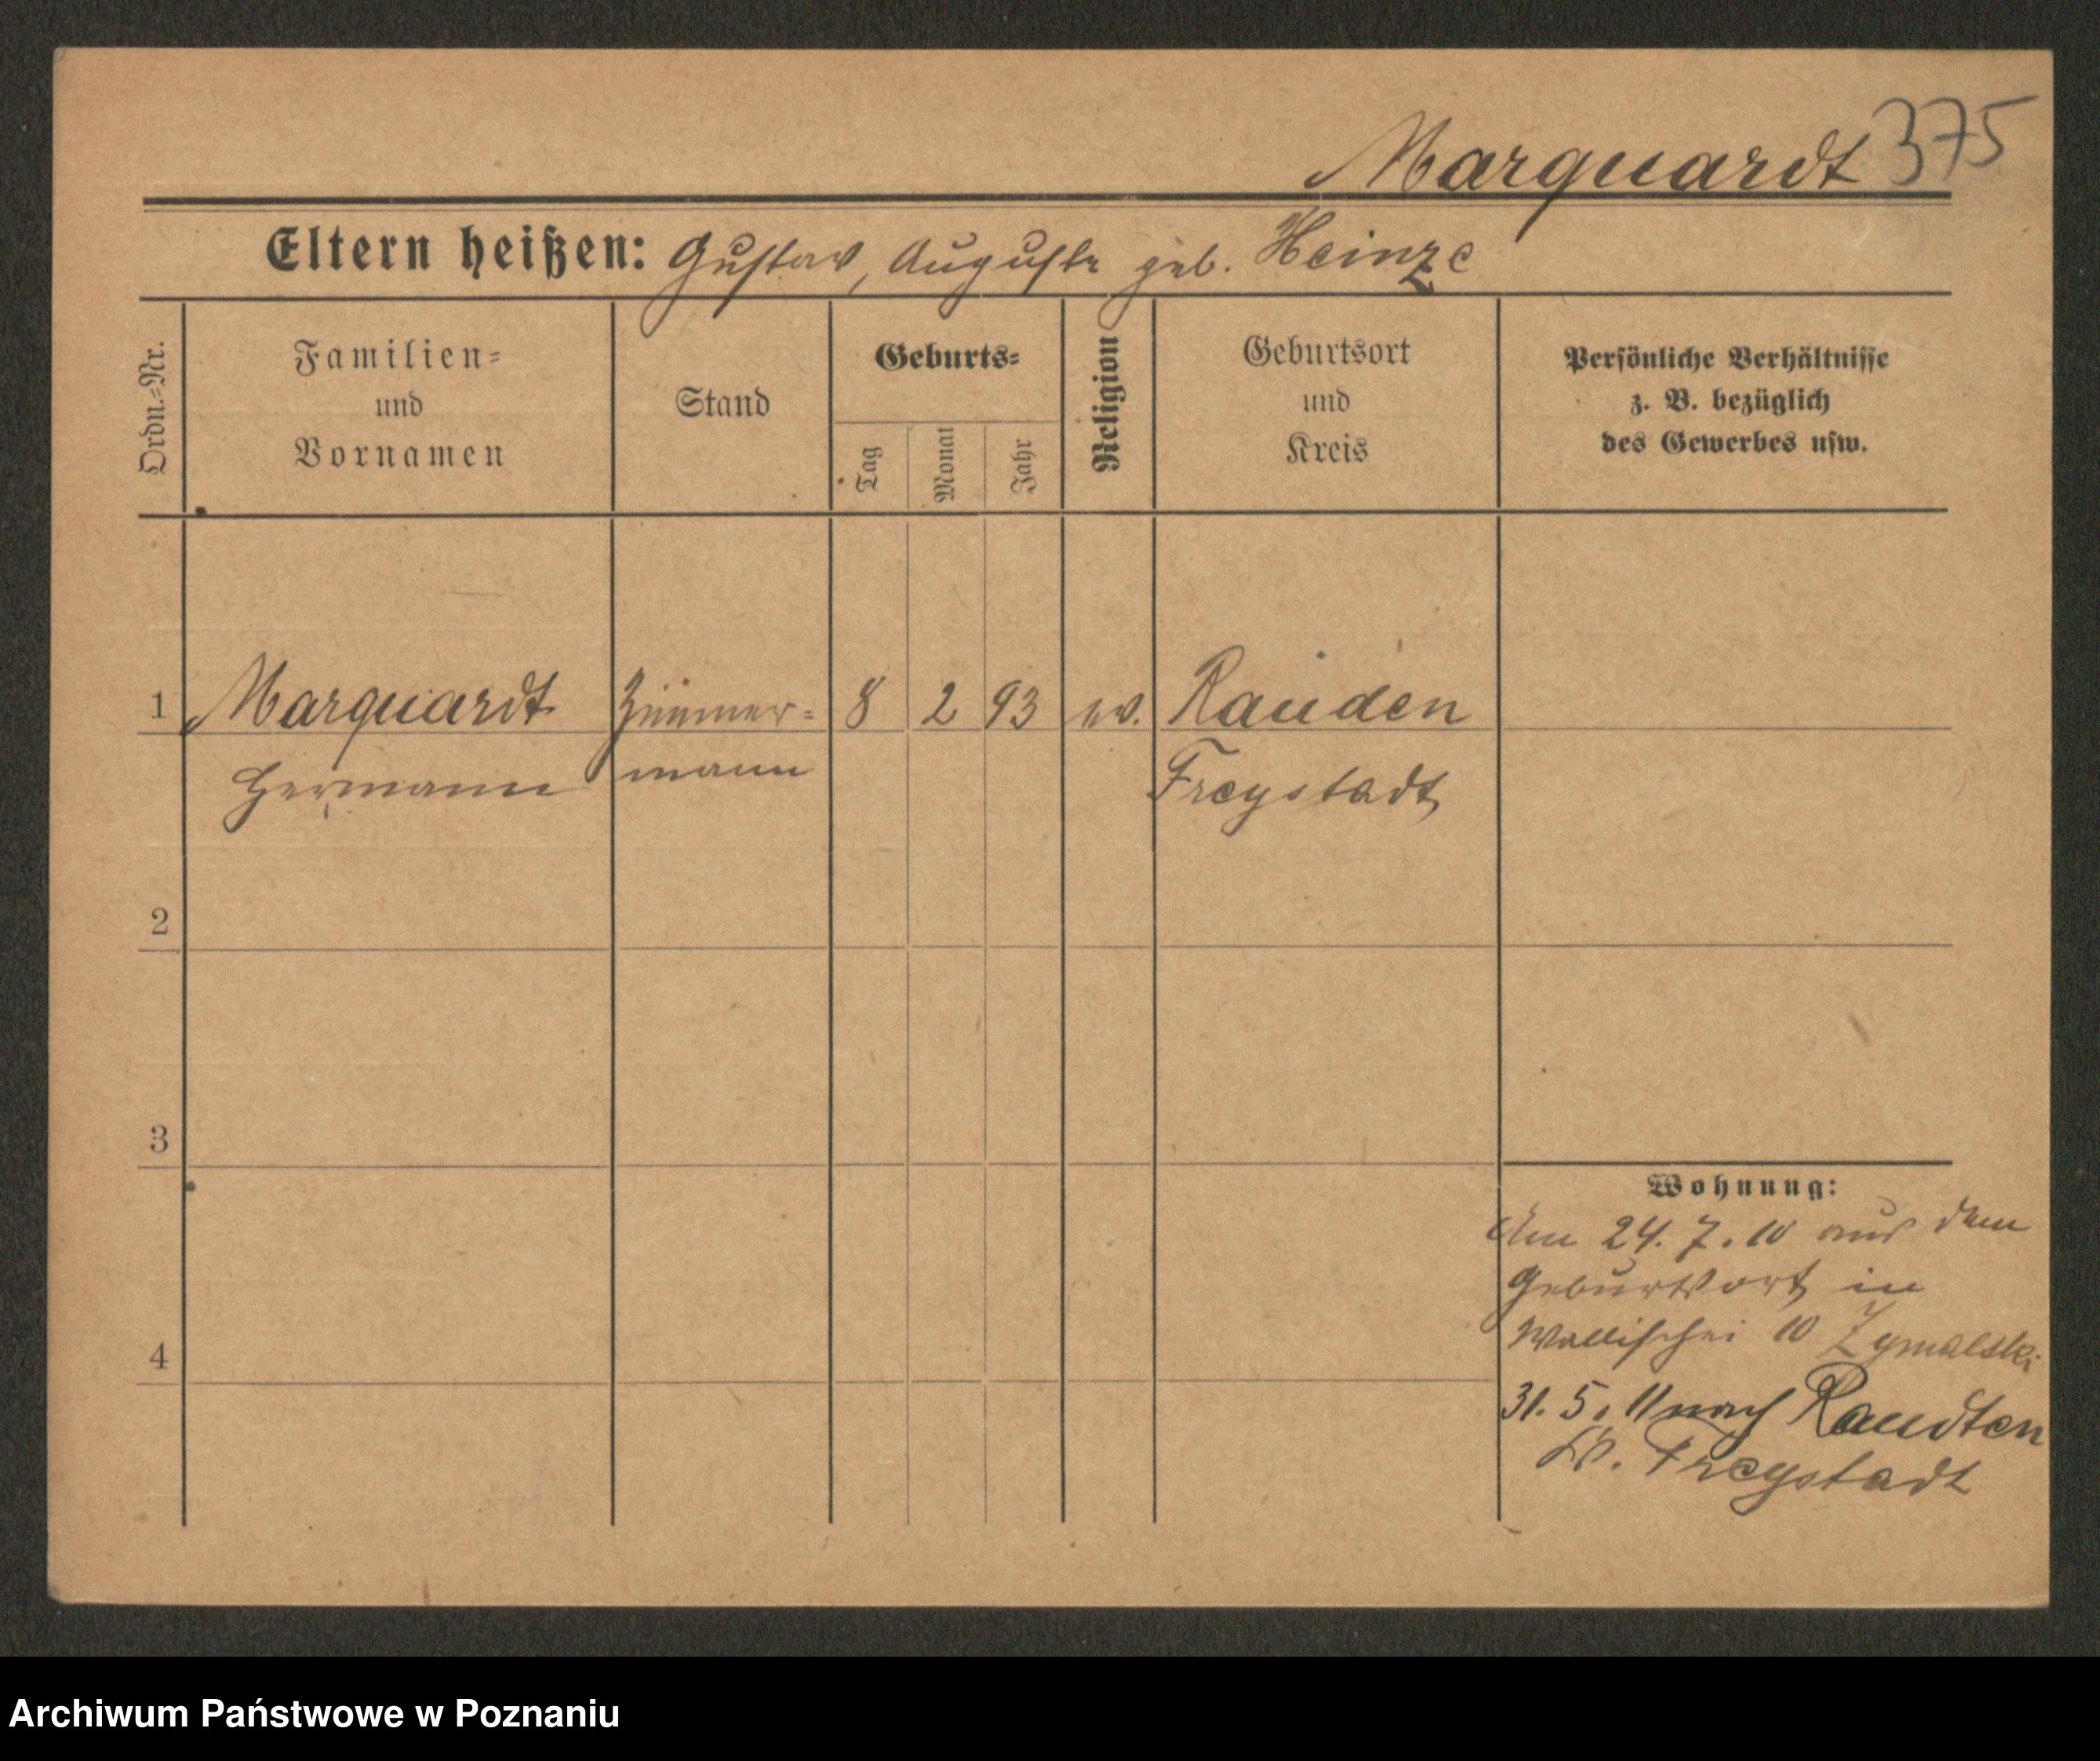 Marquardt 375
Eltern heißen: Gustav, Auguste geb. Heinze
Ordn.-Nr.
Familien-
und
Vornamen
Stand
Geburts-
Tag
Monat
Jahr
Religion
Geburtsort
und
Kreis
Persönliche Verhältnisse
z. B. bezüglich
des Gewerbes usw.
1 Marquardt Zimmer- 8 2 93 ev. Rauden
Hermann mann Freystadt
2
3
4
Wohnung:
Am 24. 7. 10 aus dem
Geburtsort in
Wallischei 10 Zymalski
31. 5. 11 nach Raudten
Kr. Freystadt
Archiwum Państwowe w Poznaniu